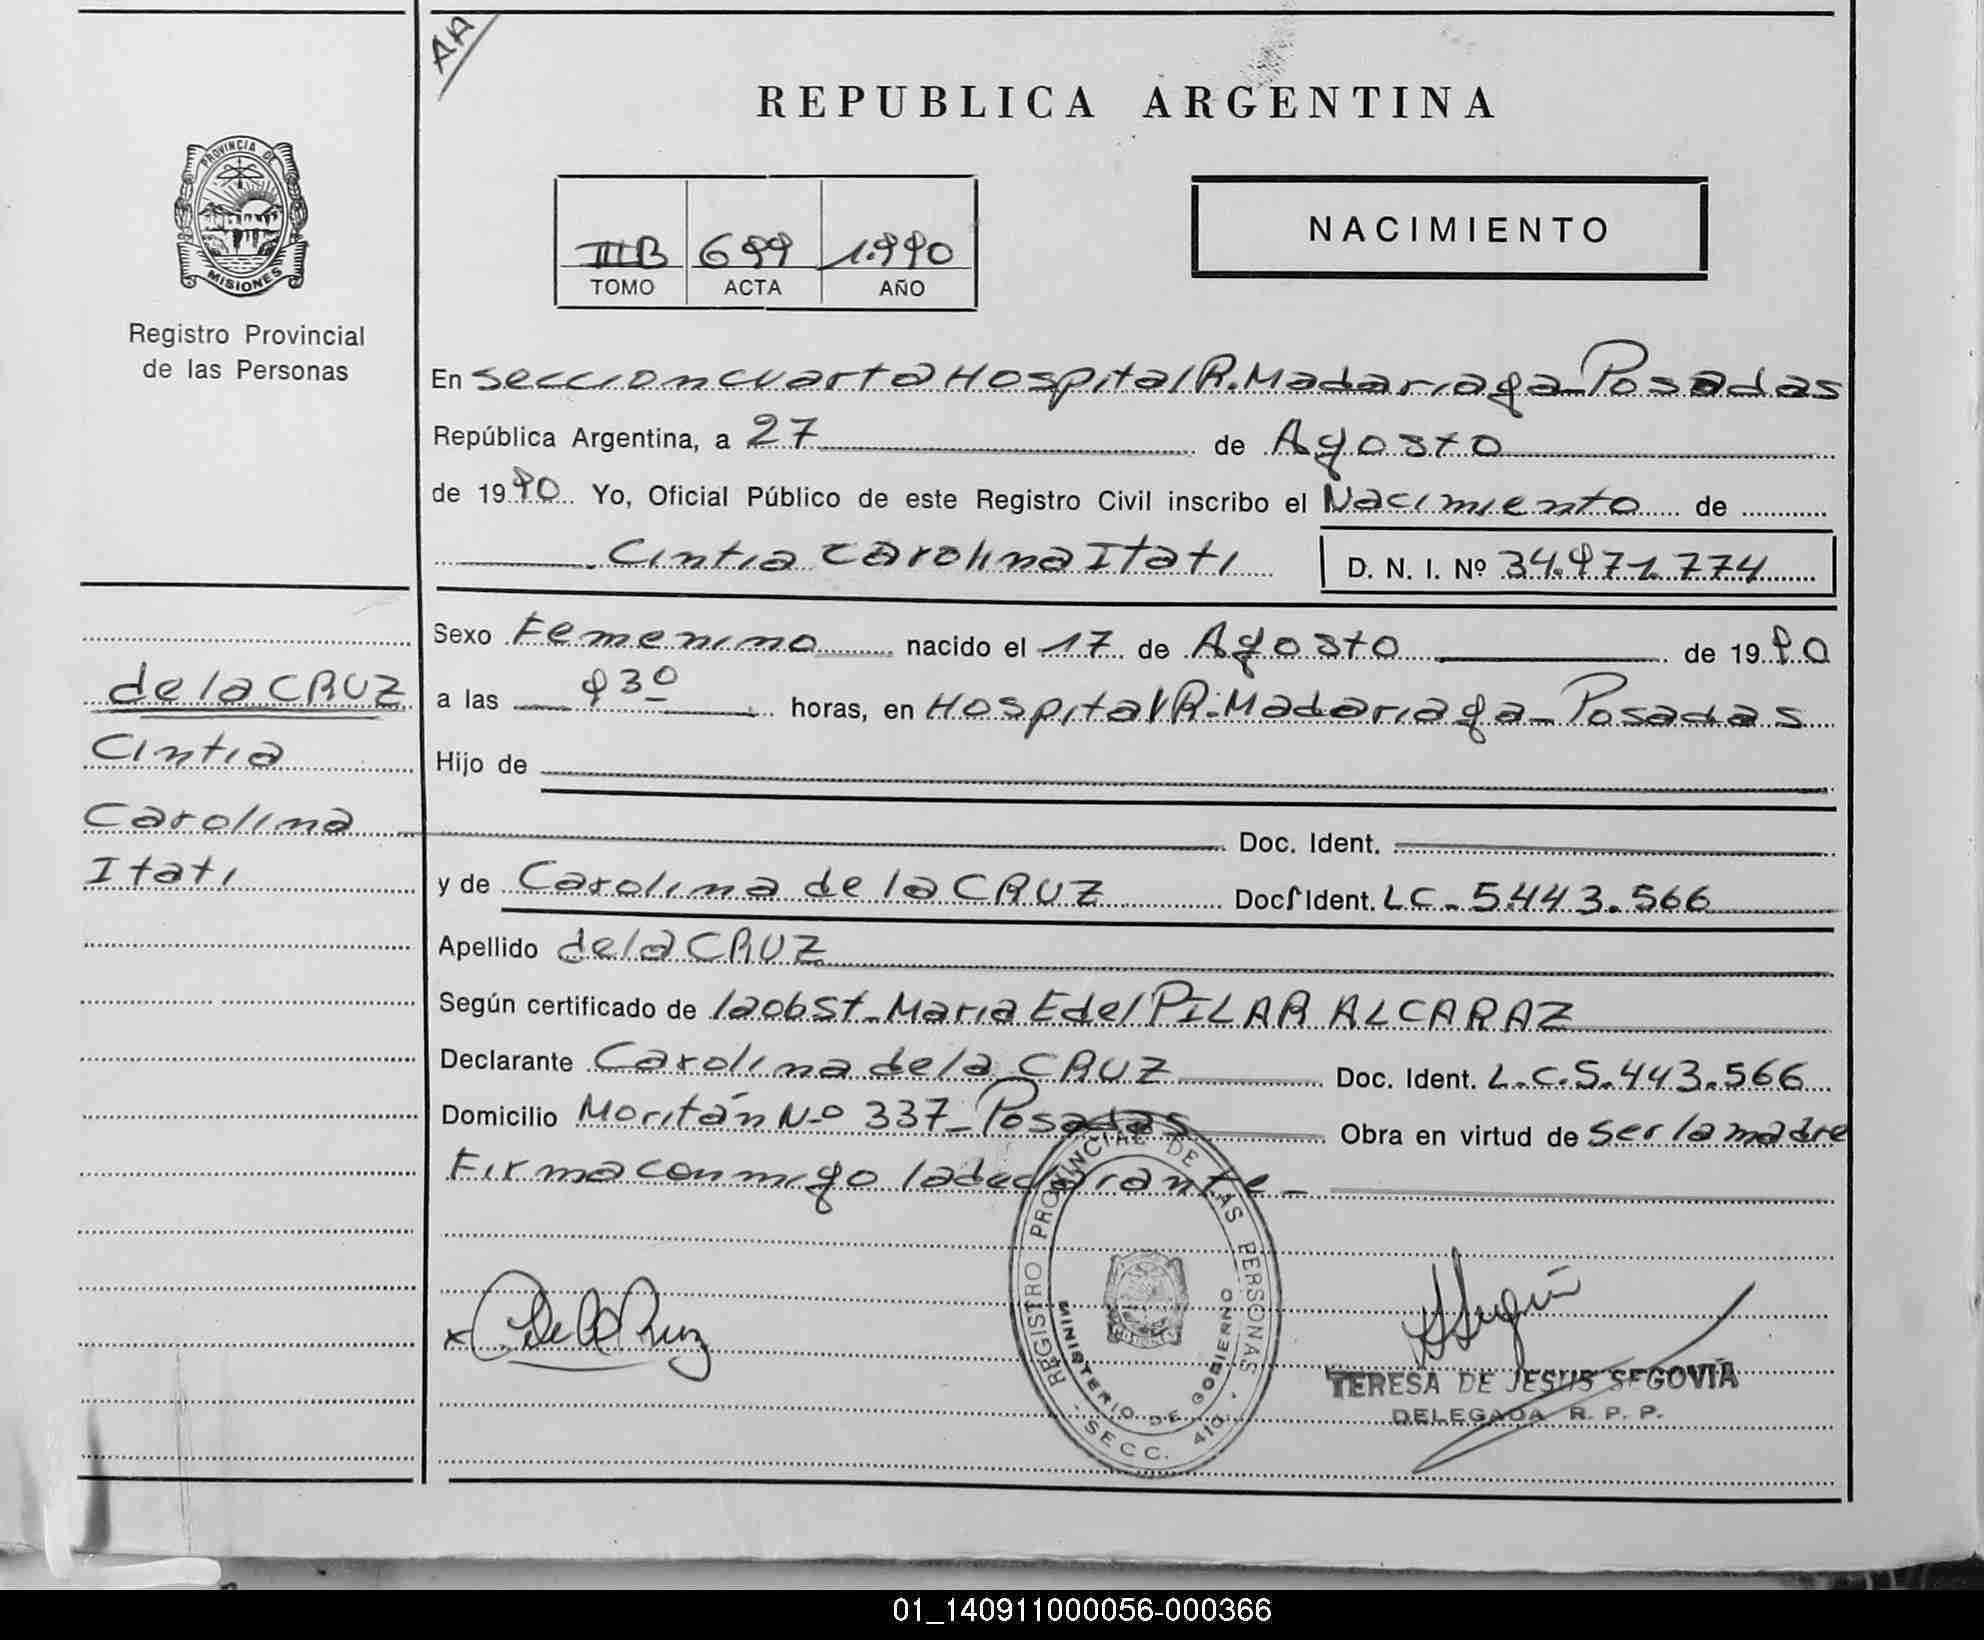 AA
REPUBLICA ARGENTINA
PROVINCIA DE
MISIONES
Registro Provincial
de las Personas
III B 699 1.990
TOMO ACTA AÑO
NACIMIENTO
En seccion cuarta Hospital R. Madariaga - Posadas
República Argentina, a 27 de Agosto
de 1990 Yo, Oficial Público de este Registro Civil inscribo el Nacimiento de
Cintia Carolina Itati D. N. I. Nº 34.971.774
Sexo Femenino nacido el 17 de Agosto de 1990
a las 9 30 horas, en Hospital R. Madariaga - Posadas
Hijo de
Doc. Ident.
y de Carolina de la CRUZ Doc. Ident. LC - 5.443.566
Apellido de la CRUZ
Según certificado de la obst - Maria E del PILAR ALCARAZ
Declarante Carolina de la CRUZ Doc. Ident. L.C.5.443.566
Domicilio Moritán Nº 337 - Posadas Obra en virtud de ser la madre
Firma conmigo la declarante -
de la CRUZ
Cintia
Carolina
Itati
x C. de la Cruz
REGISTRO PROVINCIAL DE LAS PERSONAS
MINISTERIO DE GOBIERNO
SECC. 4ta
TERESA DE JESUS SEGOVIA
DELEGADA R. P. P.
01_140911000056-000366